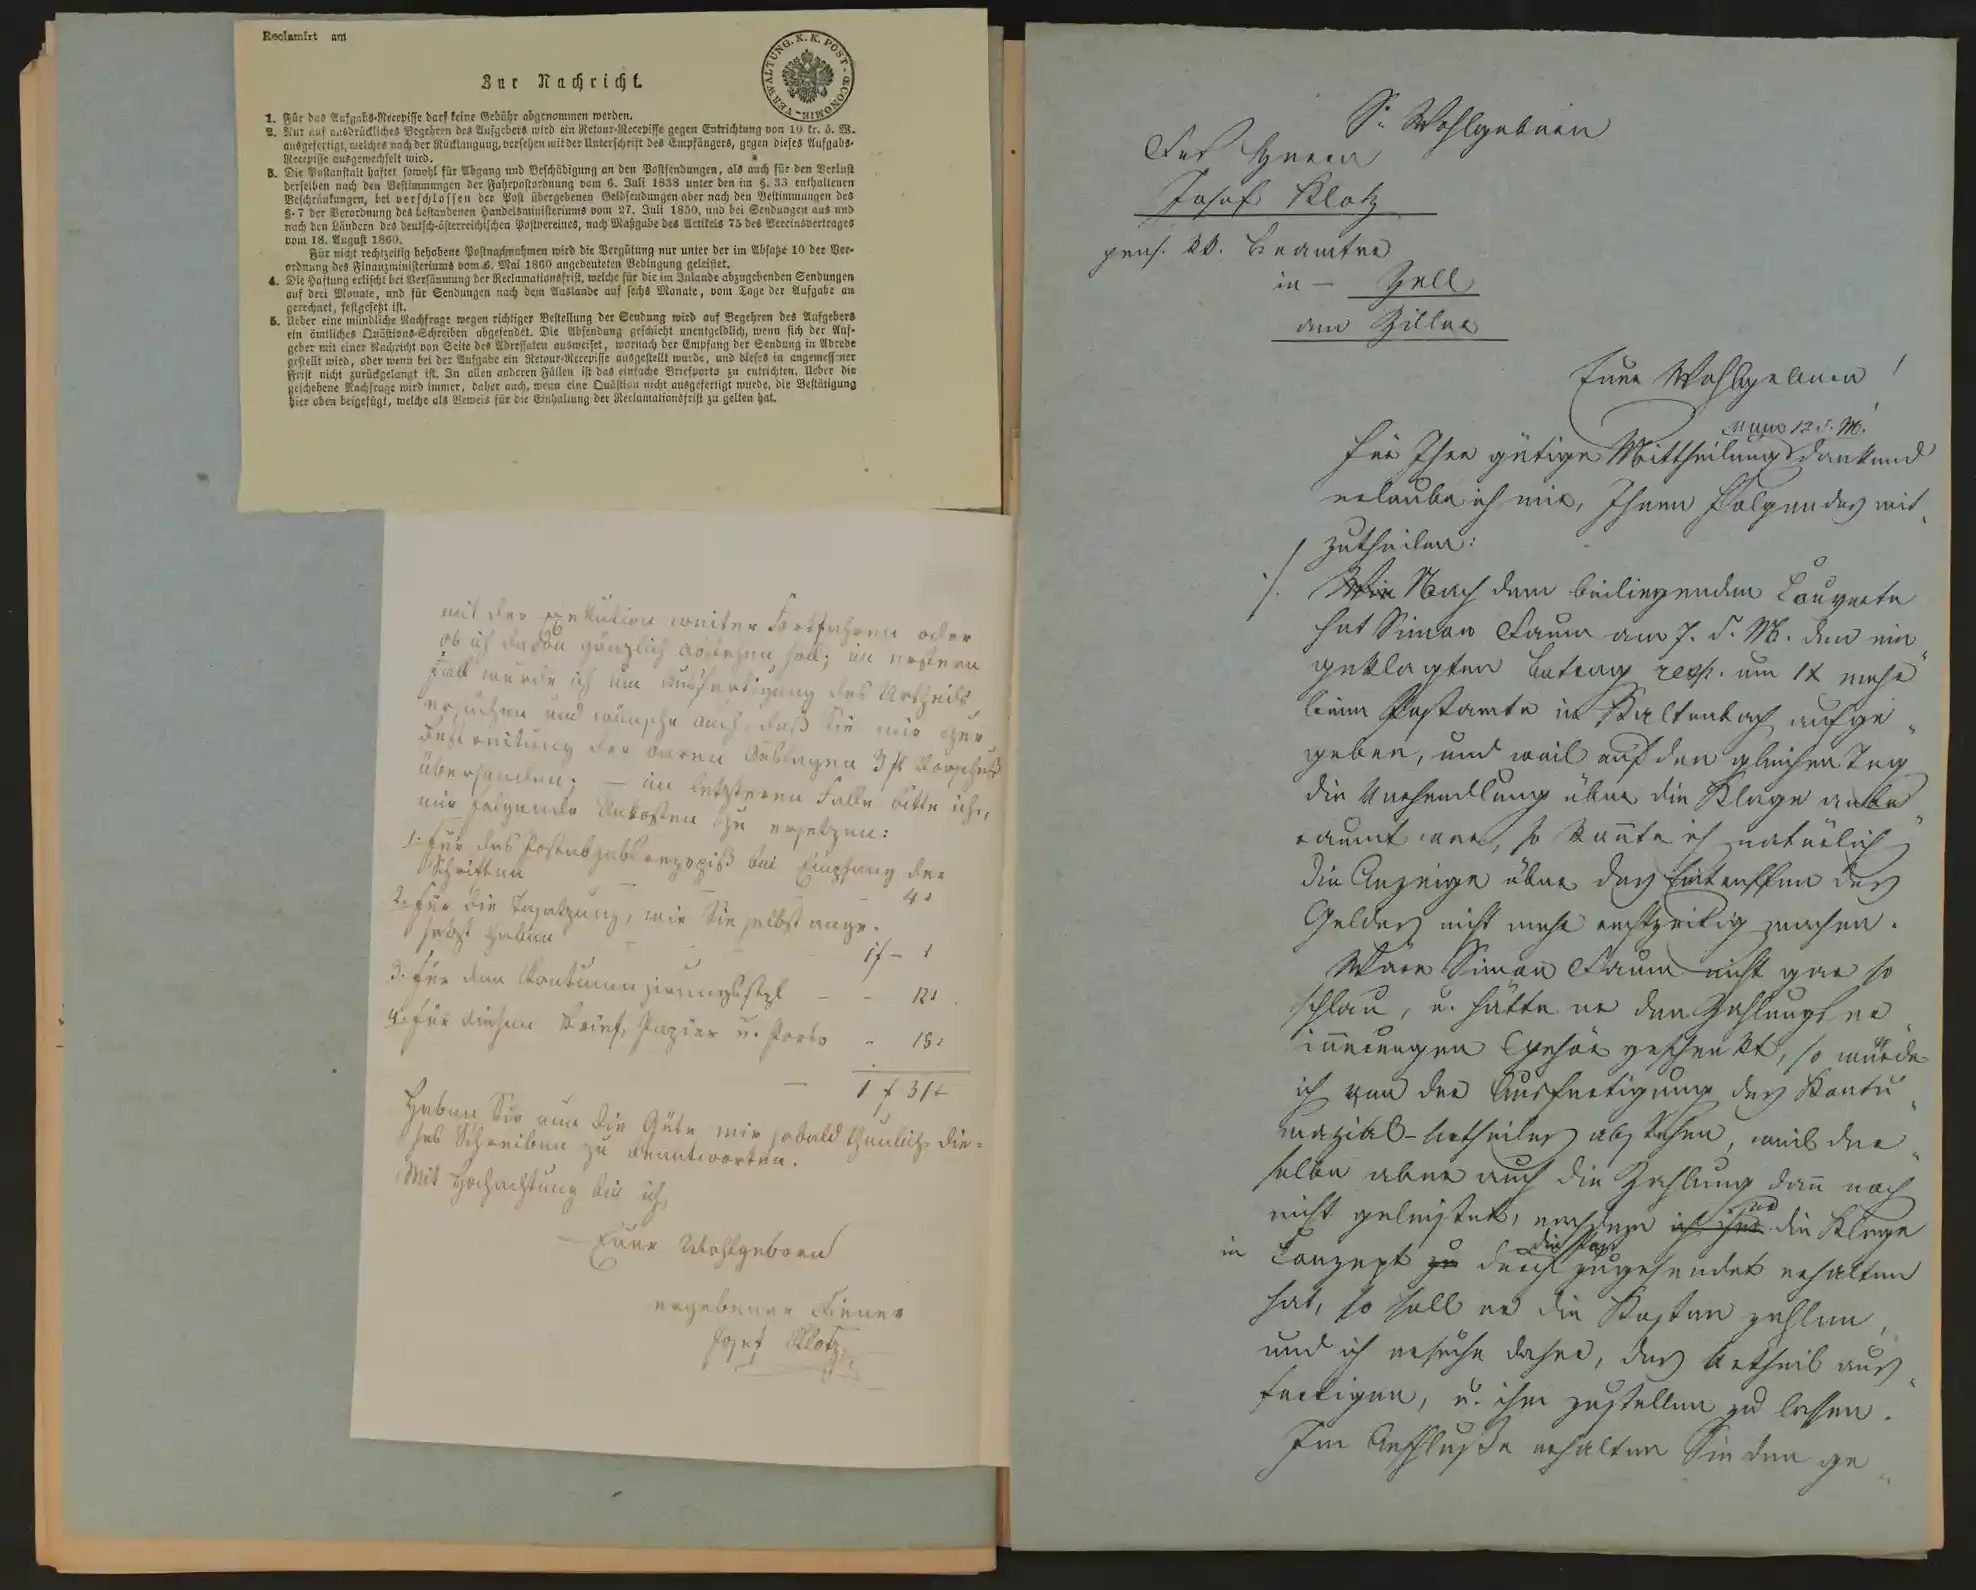 Reclamirt am
K. K. POST-ŒCONOMIE-VERWALTUNG.
Zur Nachricht.
1. Für das Aufgabs-Recepisse darf keine Gebühr abgenommen werden.
2. Nur auf ausdrückliches Begehren des Aufgebers wird ein Retour-Recepisse gegen Entrichtung von 10 kr. ö. W.
ausgefertigt, welches nach der Rücklangung, versehen mit der Unterschrift des Empfängers, gegen dieses Aufgabs-
Recepisse ausgewechselt wird.
3. Die Postanstalt haftet sowohl für Abgang und Beschädigung an den Postsendungen, als auch für den Verlust
derselben nach den Bestimmungen der Fahrpostordnung vom 6. Juli 1838 unter den im §. 33 enthaltenen
Beschränkungen, bei verschlossen der Post übergebenen Geldsendungen aber nach den Bestimmungen des
§. 7 der Verordnung des bestandenen Handelsministeriums vom 27. Juli 1850, und bei Sendungen aus und
nach den Ländern des deutsch-österreichischen Postvereines, nach Maßgabe des Artikels 75 des Vereinsvertrages
vom 18. August 1860.
Für nicht rechtzeitig behobene Postnachnahmen wird die Vergütung nur unter der im Absatze 10 der Ver-
ordnung des Finanzministeriums vom 6. Mai 1860 angedeuteten Bedingung geleistet.
4. Die Haftung erlischt bei Versäumung der Reclamationsfrist, welche für die im Inlande abzugebenden Sendungen
auf drei Monate, und für Sendungen nach dem Auslande auf sechs Monate, vom Tage der Aufgabe an
gerechnet, festgesetzt ist.
5. Ueber eine mündliche Nachfrage wegen richtiger Bestellung der Sendung wird auf Begehren des Aufgebers
ein ämtliches Quästions-Schreiben abgesendet. Die Absendung geschieht unentgeldlich, wenn sich der Auf-
geber mit einer Nachricht von Seite des Adressaten ausweiset, wornach der Empfang der Sendung in Abrede
gestellt wird, oder wenn bei der Aufgabe ein Retour-Recepisse ausgestellt wurde, und dieses in angemessener
Frist nicht zurückgelangt ist. In allen anderen Fällen ist das einfache Briefporto zu entrichten. Ueber die
geschehene Nachfrage wird immer, daher auch, wenn eine Quästion nicht ausgefertigt wurde, die Bestätigung
hier oben beigefügt, welche als Beweis für die Einhaltung der Reclamationsfrist zu gelten hat.
mit der Exekution weiter Fortfahren oder
ob ich davon gänzlich abstehen soll; im ersteren
Fall würde ich um Ausfertigung des Urtheils
ersuchen und wünsche auch, daß Sie mir zur
Bestreitung der baren Auslagen 3 fl Vorschuß
übersenden; – im letzteren Falle bitte ich,
mir folgende Unkosten zu ersetzen:
1. Für das Postabgabsrezepiß bei Empfang der
Schriften – – 4 "
2. Für die Tagsatzung, wie Sie selbst ange-
setzt haben – – 1 f – "
3. Für den Kontumazirungsstpl – – 12 "
4. Für diesen Brief, Papier u. Porto – 15 "
1 f 31 "
Haben Sie nun die Güte mir sobald thunlich die-
ses Schreiben zu beantworten.
Mit Hochachtung bin ich
Euer Wohlgeboren
ergebener Diener
Josef Klotz
Sr Wohlgeboren
Des Herrn
Josef Klotz
pens. kk. Beamter
in – Zell
am Ziller
Euer Wohlgeboren!
vom 12. d. M.
Für Ihre gütige Mittheilung dankend
erlaube ich mir, Ihnen Folgendes mit-
zutheilen:
./. Wie Nach dem beiliegenden Couverte
hat Simon Daum am 7. d. M. den ein-
geklagten Betrag resp. um 1 x mehr
beim Postamte in Kaltenbach aufge-
geben, und weil auf den gleichen Tag
die Verhandlung über die Klage anbe-
raumt war, so konnte ich natürlich
die Anzeige über das Eintreffen des
Geldes nicht mehr rechtzeitig machen.
Wäre Simon Daum nicht gar so
schlau, u. hätte er den Zahlungs er-
innerungen Gehör geschenkt, so würde
ich von der Ausfertigung des Kontu-
mazial-Urtheiles abstehen, weil der-
selbe aber auch die Zahlung dann noch
nicht geleistet, nachdem ich ihm er die Klage
in Conzept zu durch die Post zugesendet erhalten
hat, so soll er die Kosten zahlen,
und ich ersuche daher, das Urtheil aus-
fertigen, u. ihm zustellen zu lassen.
Im Anschluße erhalten Sie den ge-